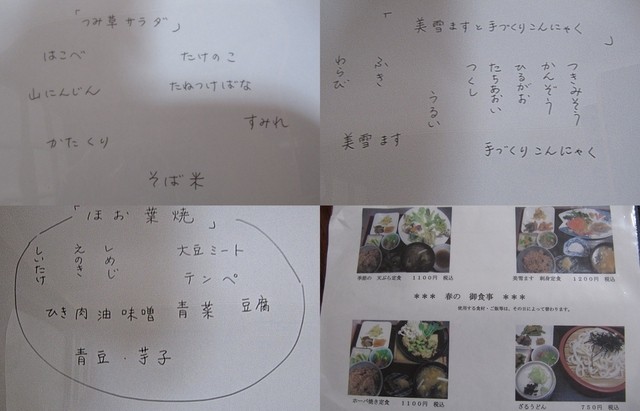 「つみ草サラダ」
はこべ
たけのこ
山にんじん
たねつけばな
すみれ
かたくり
そば米
「美雪ますと手づくりこんにゃく」
つきみそう
かんぞう
ひるがお
たちあおい
つくし
うるい
ふき
わらび
美雪ます
手づくりこんにゃく
「ほお葉焼」
しいたけ
えのき
しめじ
大豆ミート
テンペ
ひき肉
油味噌
青菜
豆腐
青豆・芋子
季節の 天ぷら定食 1100円 税込
美雪ます 刺身定食 1200円 税込
*** 春の 御食事 ***
使用する食材・ご飯等は、その日によって替わります。
ホーバ焼き定食 1100円 税込
ざるうどん 750円 税込